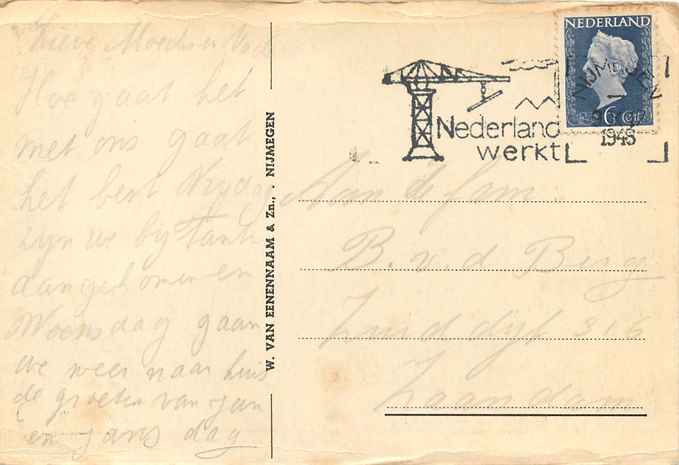 Lieve Moeder en
Hoe gaat het
met ons gaat
het best Vrijdag
zijn we bij Tante
aangekomen en
Woensdag gaan
we weer naar huis
de groeten van Jan
en Jans dag
W. VAN EENENNAAM & Zn., . NIJMEGEN
NEDERLAND
6 Cent
NIJMEGEN
1948
Nederland
werkt
Aan de fam
B. v. d Berg
Zuiddijk 316
Zaandam